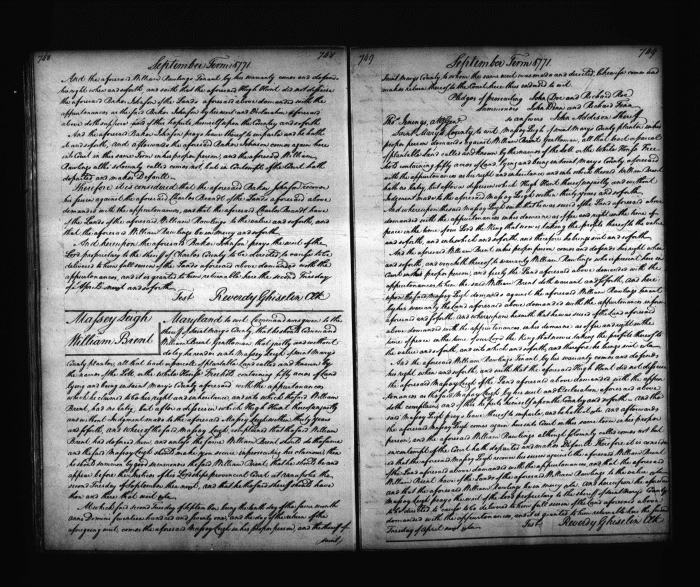 748 748
September Term 1771
And the aforesaid William Rawlings Tenant by his warranty comes and defends
his right when and so forth, and saith that the aforesaid Hugh Hunt did not disseise
the aforesaid Baker Johnson of the Lands aforesaid above demanded with the
appurtenances as the said Baker Johnson by his writ and Declaration aforesaid
above doth suppose and of this he puts himself upon the Country and so forth
And the aforesaid Baker Johnson prays leave thereof to imparle and he hath
it and so forth, and afterwards the aforesaid Baker Johnson comes again here
into Court in this same Term in his proper person, and the aforesaid William
Rawlings altho solemnly called comes not but in Contempt of the Court hath
departed and makes Default
Therefore it is considered that the aforesaid Baker Johnson recover
his seisin against the aforesaid Charles Beandt of the Lands aforesaid above
demanded with the appurtenances, and that the aforesaid Charles Beandt have
of the Lands of the aforesaid William Rawlings to the value and so forth, and
that the aforesaid William Rawlings be in Mercy and so forth.
And hereupon the aforesaid Baker Johnson prays the writ of the
Lord proprietary to the sheriff of Charles County to be directed, to cause to be
delivered to him full seisin of the Lands aforesaid above demanded with the
appurtenances, and it is granted to him, returnable here the second Tuesday
of April next and so forth.
Test Reverdy Ghiselin Clk
Massey Leigh
William Brent
Maryland to wit. Command was given to the
sheriff of Saint Marys County, that he should Command
William Brent Gentleman that justly and without
delay he render unto Massey Leigh of Saint Marys
County planter, all that tract or parcel of patentable Land called and known by
the name of the Lott, in the White House Freehold containing fifty acres of Land
lying and being in Saint Marys County aforesaid with the appurtenances
which he claims to be his right and inheritance, and into which the said William
Brent has no entry, but after a disseisin which Hugh Hunt thereof unjustly
and without Judgment made to the aforesaid Massey Leigh within thirty years
and so forth,
the said William Brent that he should be and
appear before the Justices of his Lordships provincial Court at Annapolis the
second Tuesday of September then next, and that the said sheriff should have
then and there that writ
At which said second Tuesday of September being the tenth day of the same month
Anno Domini seventeen hundred and seventy one, and the day of the return of the
aforegoing writ, comes the aforesaid Massey Leigh in his proper person; and the sheriff of
749 749
September Term 1771
Saint Marys County to whom the same writ was made and directed,
makes return thereof to the Court here thus endorsed to wit.
Pledges of prosecuting John Doe and Richard Roe
Summoners John Denn and Richard Fenn
so answers John Addison Sheriff
Saint Marys County to wit. Massey Leigh of Saint Marys County planter in his
proper person demands against William Brent gentleman, all that tract or parcel
of patentable Land called and known by the name of the Lott in the White House Free
hold containing fifty acres of Land lying and being in Saint Marys County aforesaid
with the appurtenances as his right and inheritance and into which the said William Brent
hath no entry, but after a disseisin which Hugh Hunt thereof unjustly and without
Judgment made to the aforesaid Massey Leigh within thirty years and so forth
And whereupon the said Massey Leigh saith that he was seised of the Lands aforesaid above
demanded with the appurtenances in his demesne as of fee and right in the time of
peace in the time of our Lord the King that now is taking the profits thereof to the value
and so forth, and into which and so forth, and therefore he brings suit and so forth.
And the aforesaid William Brent in his proper person comes and defends his right when
and so forth, and voucheth thereof to warranty William Rawlings who is present here in
Court in his proper person, and freely the Land aforesaid above demanded with the
appurtenances to him the said William Brent doth warrant and so forth, and here
upon the said Massey Leigh demands against the aforesaid William Rawlings Tenant
by his warranty the Land aforesaid above demanded with the appurtenances in form
aforesaid and so forth, and whereupon he saith that he was seised of the Land aforesaid
above demanded with the appurtenances in his demesne as of fee and right in the
time of peace in the time of our Lord the King that now is taking the profits thereof to
the value and so forth, and into which and so forth, and therefore he brings suit and so forth.
And the aforesaid William Rawlings Tenant by his warranty comes and defends
his right when and so forth, and saith that the aforesaid Hugh Hunt did not disseise
the aforesaid Massey Leigh of the Land aforesaid above demanded with the appur
tenances as the said Massey Leigh by his writ and Declaration aforesaid above
doth suppose, and of this he puts himself upon the County and so forth. And the
said Massey Leigh prays leave thereof to imparle, and he hath it and so forth, and afterwards
the aforesaid Massey Leigh comes again here into Court in this same term in his proper
person, and the aforesaid William Rawlings although solemnly called comes not but
in contempt of the Court hath departed and makes Default. Therefore it is considered
that the aforesaid Massey Leigh recover his seisin against the aforesaid William Brent
of the Land aforesaid above demanded with the appurtenances, and that the aforesaid
William Brent have of the Lands of the aforesaid William Rawlings to the value and so forth
and that the aforesaid William Rawlings be in mercy &c. And hereupon the aforesaid
Massey Leigh prays the writ of the Lord proprietary to the sheriff of Saint Marys County
to be directed to cause to be delivered to him full seisin of the Land aforesaid above
demanded with the appurtenances, and it is granted to him returnable here the second
Tuesday of April next &c.
Test Reverdy Ghiselin Clk